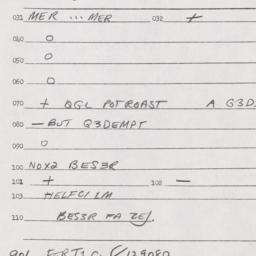 031 MER ... MER 032 +
040 O
050 O
060 O
070 + QGL POTROAST A G3D
080 — BUT Q3DEMPT
090 O
100 NOX2 BES3R
101 + 102 —
103 HELFCI LM
110 BES3R